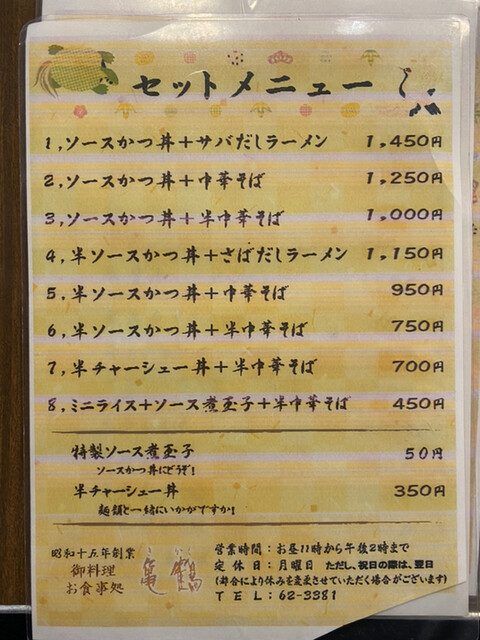 セットメニュー
1,ソースかつ丼+サバだしラーメン 1,450円
2,ソースかつ丼+中華そば 1,250円
3,ソースかつ丼+半中華そば 1,000円
4,半ソースかつ丼+さばだしラーメン 1,150円
5,半ソースかつ丼+中華そば 950円
6,半ソースかつ丼+半中華そば 750円
7,半チャーシュー丼+半中華そば 700円
8,ミニライス+ソース煮玉子+半中華そば 450円
特製ソース煮玉子 50円
ソースかつ丼にどうぞ!
半チャーシュー丼 350円
麺類と一緒にいかがですか!
昭和十五年創業
御料理
お食事処
亀鶴
営業時間:お昼11時から午後2時まで
定休日:月曜日 ただし、祝日の際は、翌日
(都合により休みを変更させていただく場合がございます)
TEL:62-3381